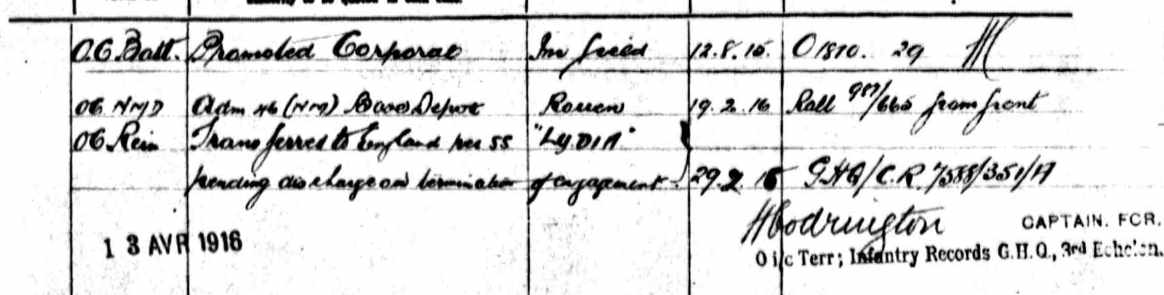 O.C. Batt. Promoted Corporal In field 12.8.15 O1810. 29
OC NMD Adm 46 (NM) Base Depot Rouen 19.2.16 Roll /665 from front
OC Rein Transferred to England per SS "LYDIA"
pending discharge on termination of engagement. 29.2.16 G.H.Q/C.R. 7588/351/A
13 AVR 1916
HCodrington CAPTAIN. FOR.
O i/c Terr; Infantry Records G.H.Q., 3rd Echelon.